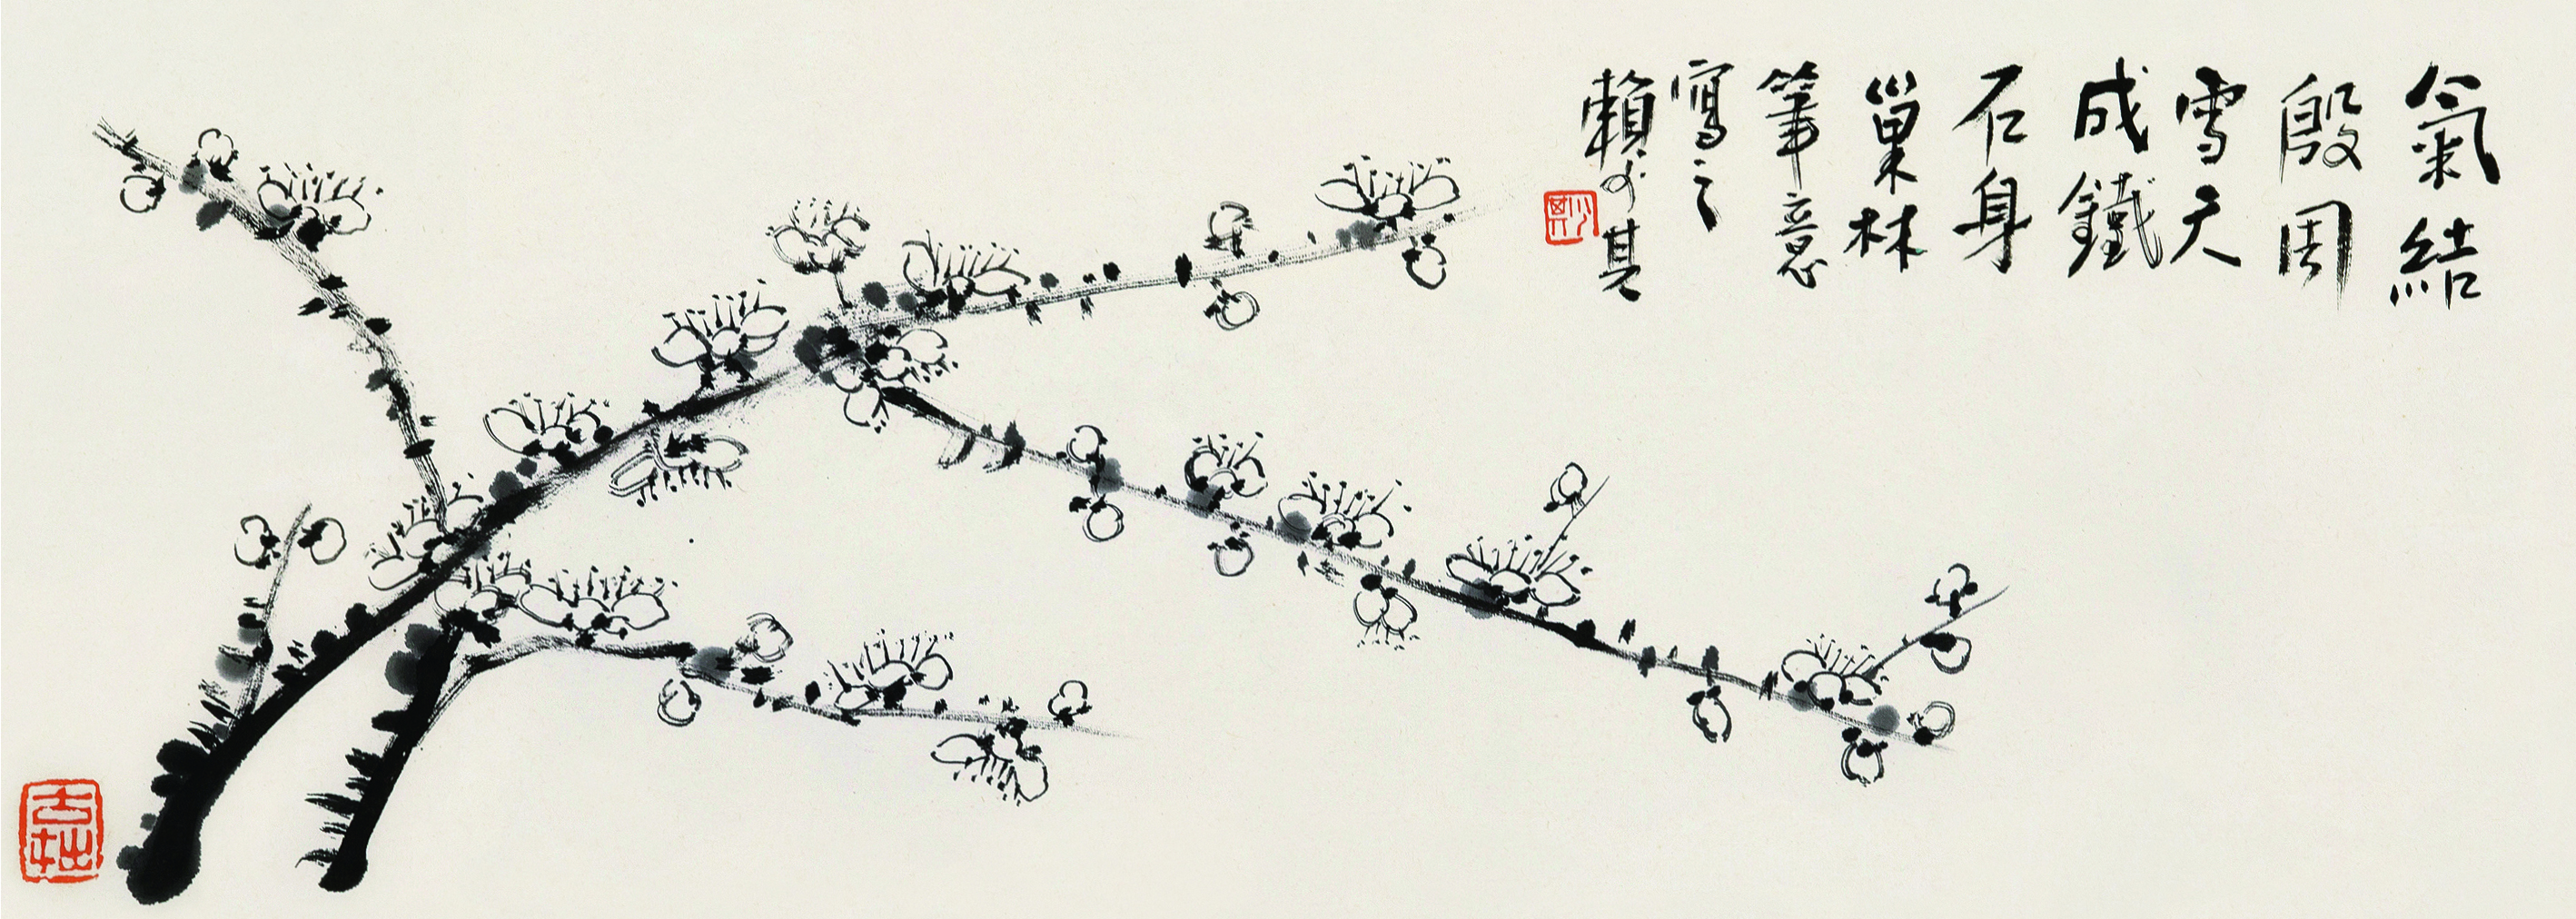 氣結
殷周
雪天
成鐵
石身
巢林
筆意
寫之
賴少其
少其
古拙